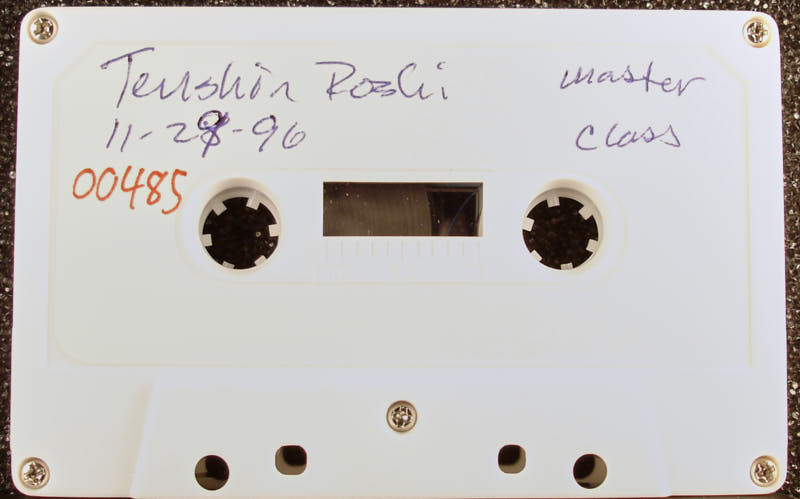 Tenshin Roshi master
11-29-96 class
00485